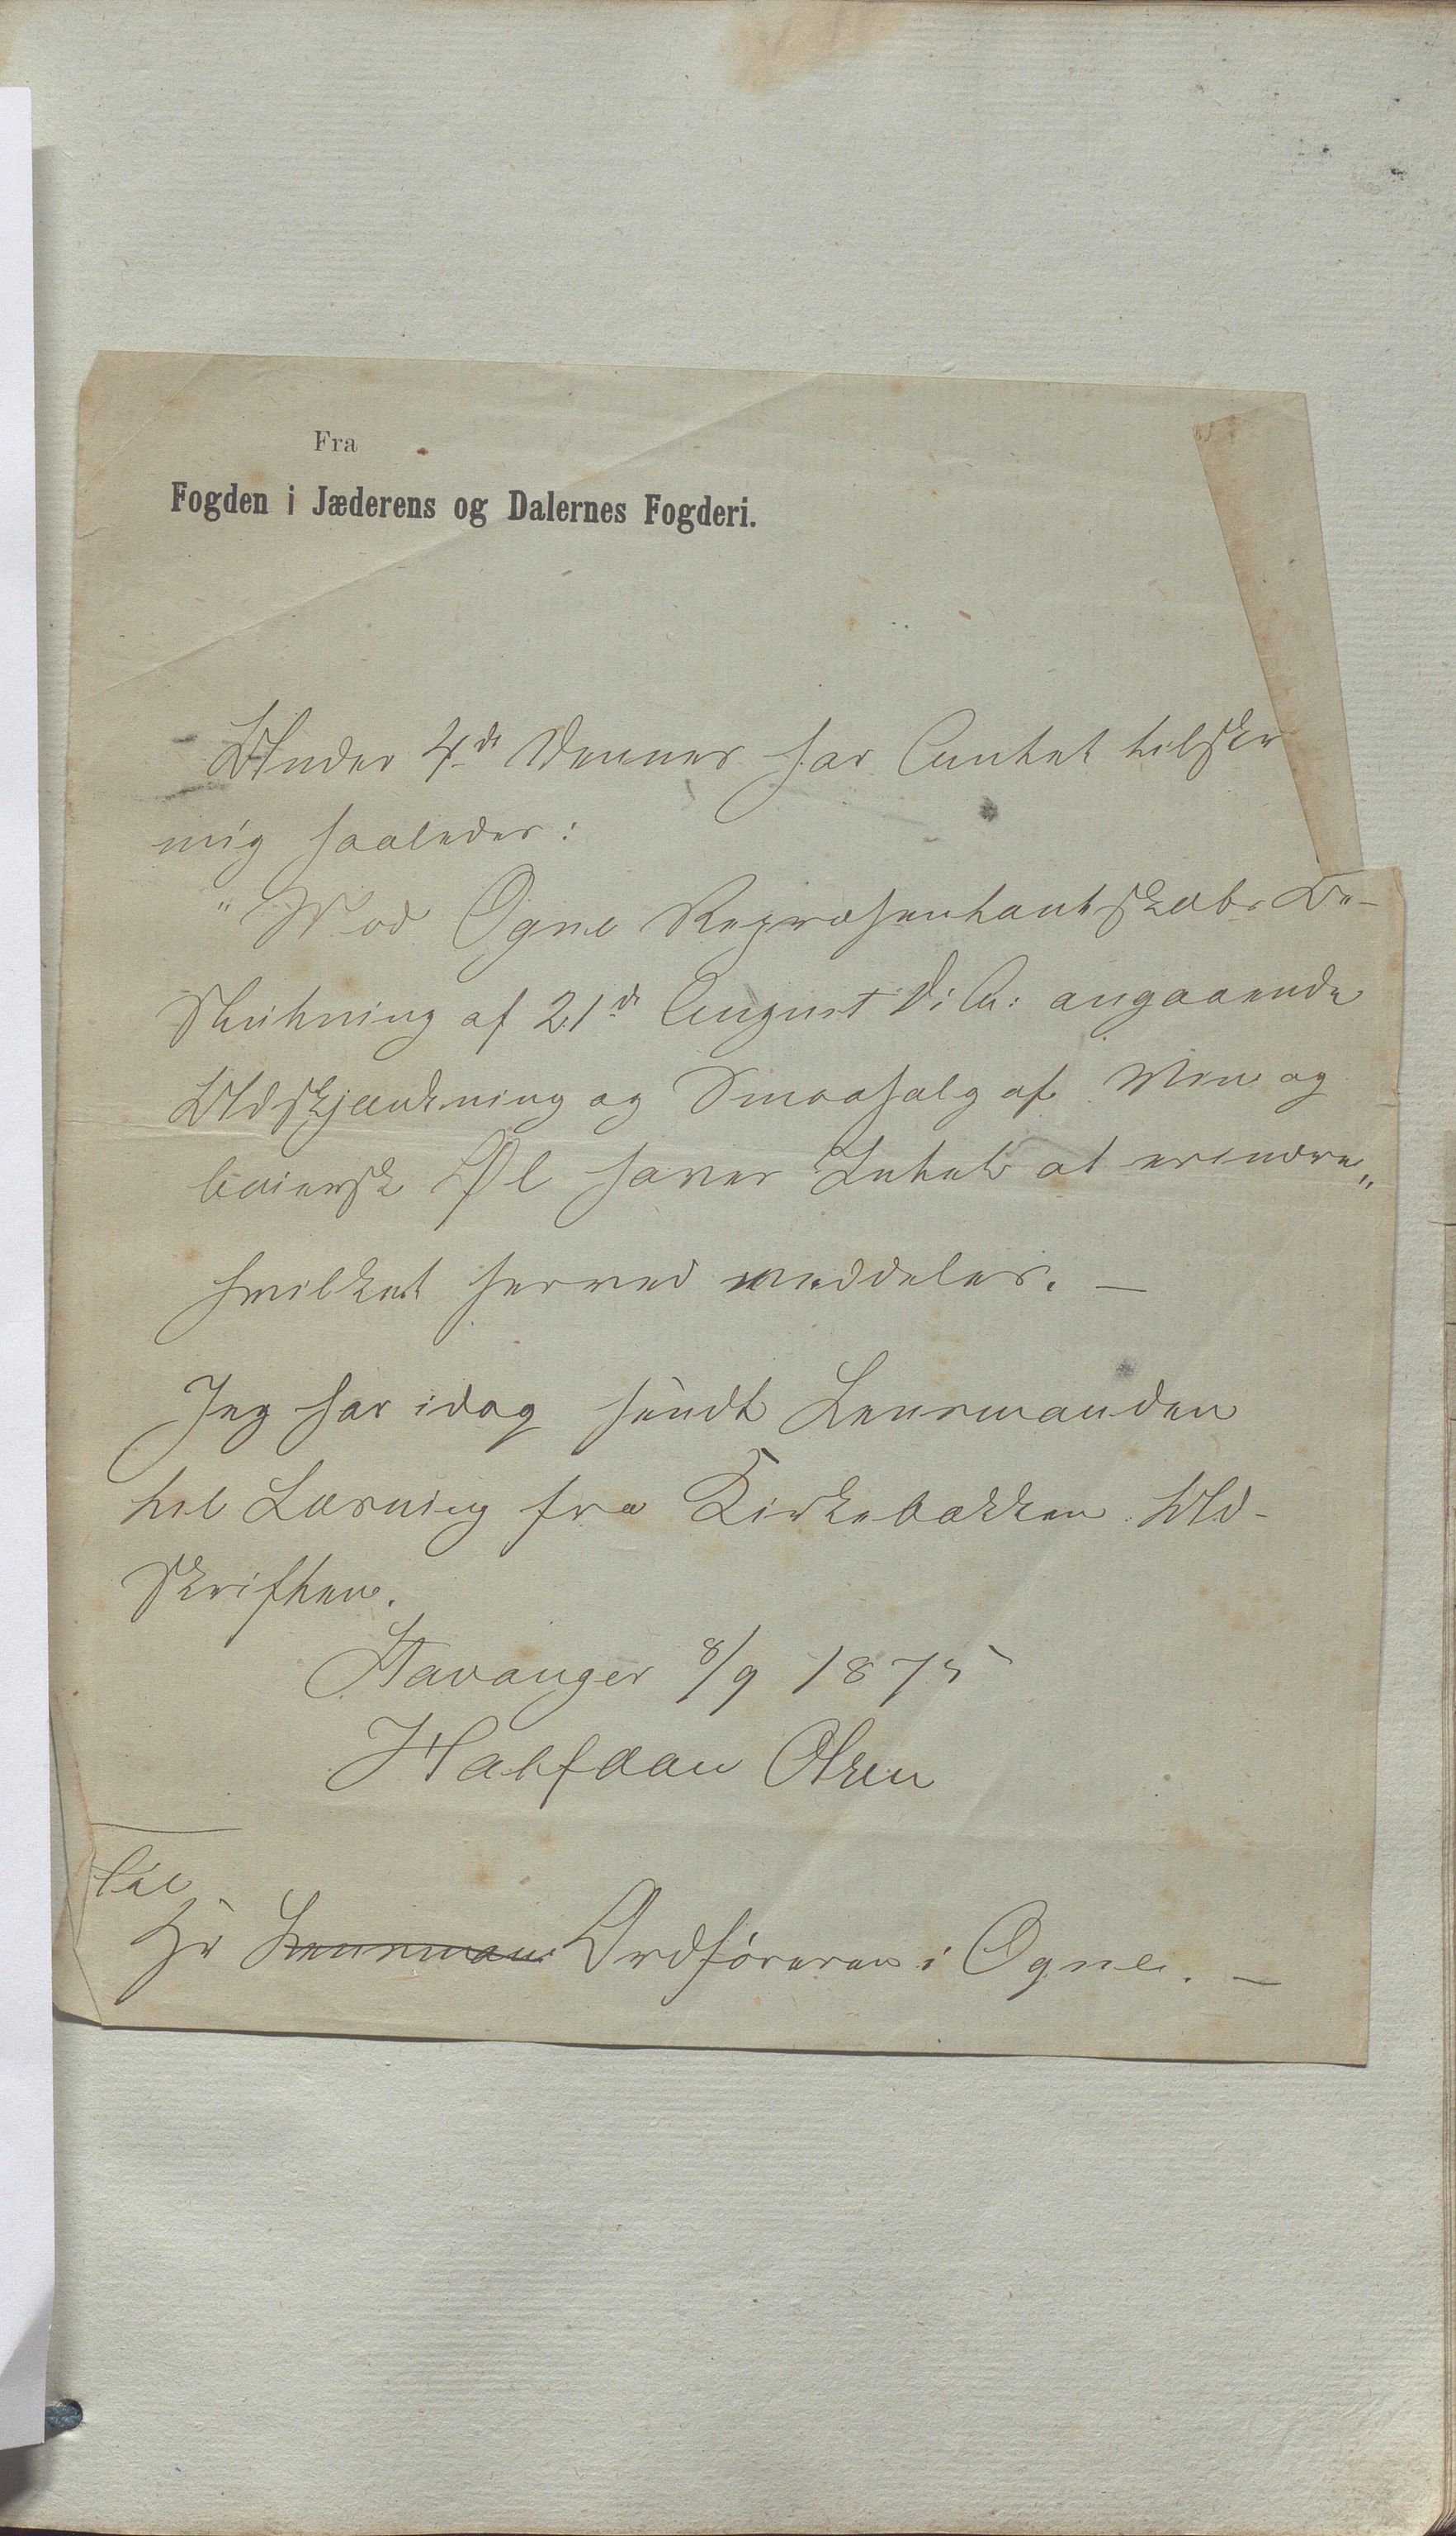 Fra
Fogden i Jæderens og Dalernes Fogderi.
Under 4de dennes har Amtet tilskr
mig saaledes:
"Mod Ogne Repræsentantskabs Be-
slutning af 21de August d: A: angaaende
Udskjænkning og Smaasalg af Vin og
baiersk Øl haves Intet at erindre"
hvilket herved meddeles. —
Jeg har idag sendt Lensmanden
til Læsning fra Kirkebakken Ud-
skriften.
Stavanger 8/9 1875
Halfdan Olsen
til
Hr Lensman Ordføreren i Ogne. —